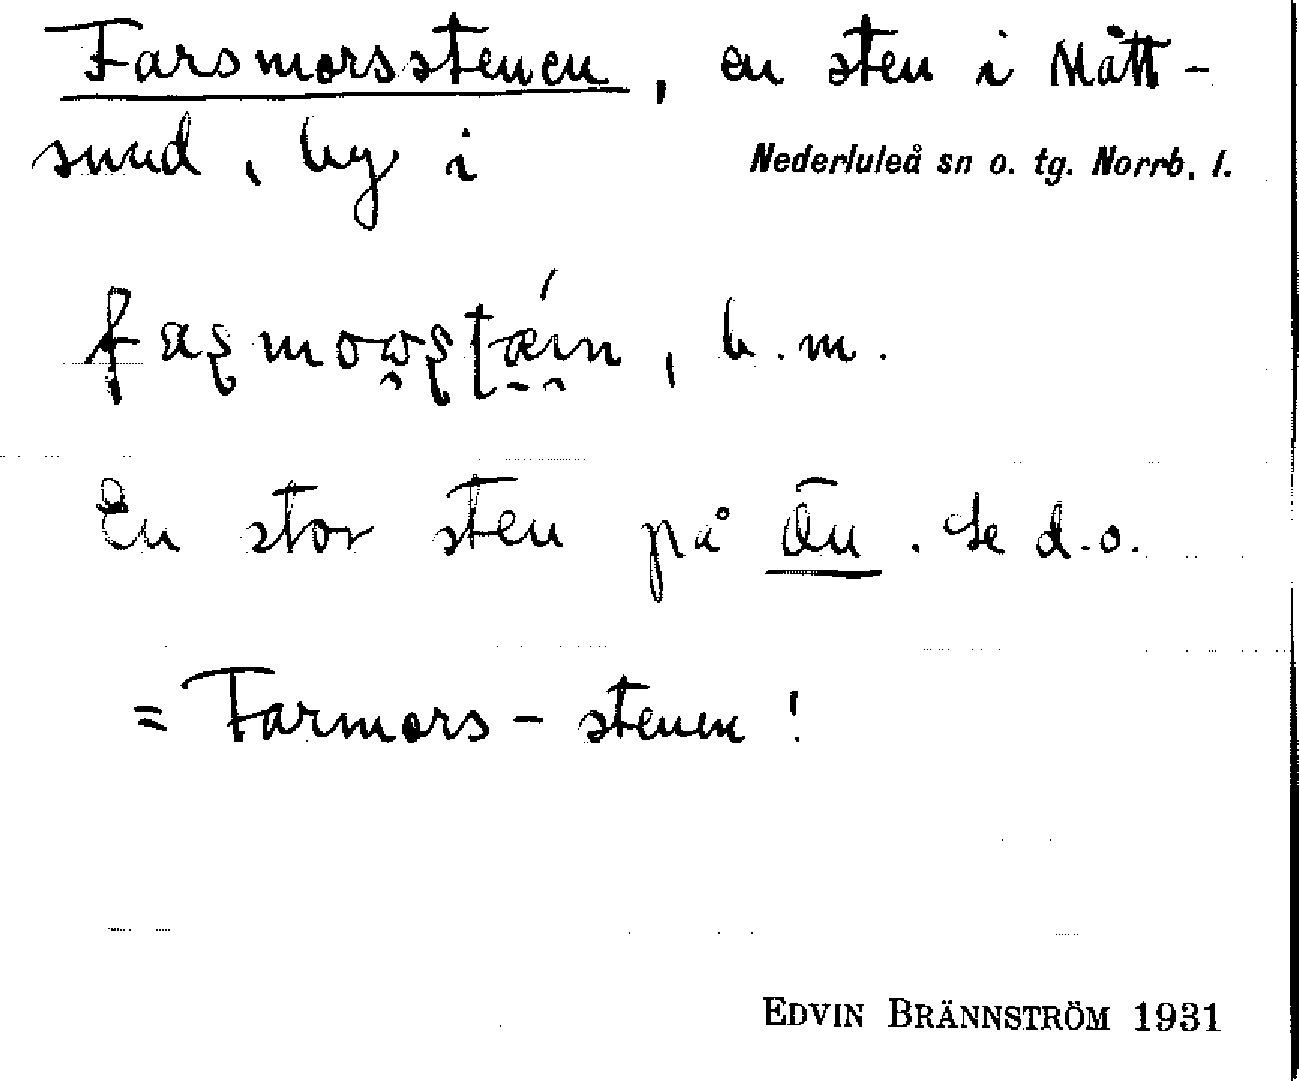 Farsmorsstenen, en sten i Mått-
sund, by i Nederluleå sn o. tg. Norrb. l.
b.m.
En stor sten på Ön. Se d.o.
= Farmors-stenen!
EDVIN BRÄNNSTRÖM 1931